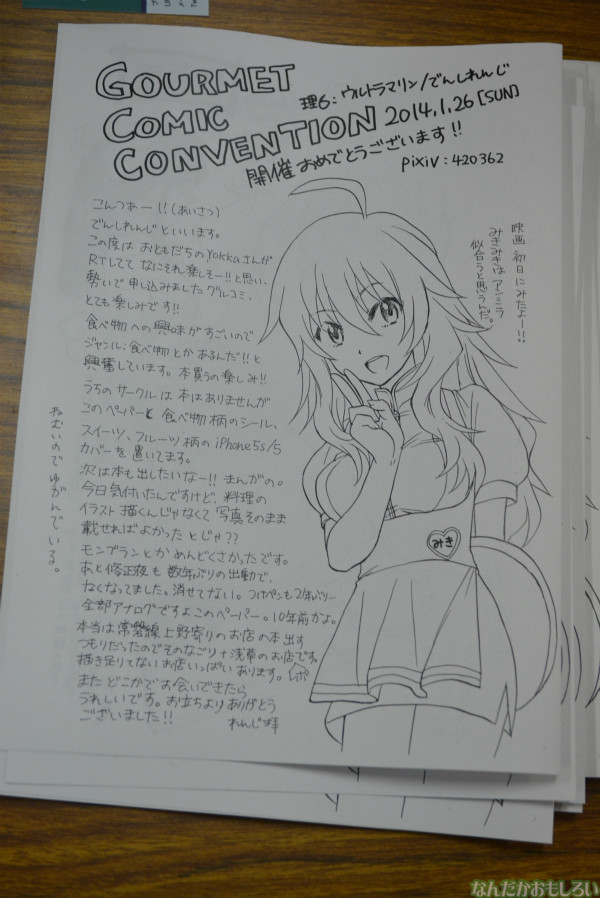 GOURMET
COMIC
CONVENTION
理6: ウルトラマリン/でんしれんじ
2014.1.26[SUN]
開催おめでとうございます!!
pixiv:420362
こんつぁー!!(あいさつ)
でんしれんじといいます。
この度はおともだちのYokkaさんが
RTしてて なにそれ楽しそー!!と思い、
勢いで申し込みましたグルコミ、
とても楽しみです!!
食べ物への興味がすごいので
ジャンル:食べ物とかあるんだ!!と
興奮しています。本買うの楽しみ!!
うちのサークルは本はありませんが
このペーパーと食べ物柄のシール、
スイーツ、フルーツ柄のiPhone5s/5
カバーを置いてます。
次は本も出したいなー!!まんがの。
今日気付いたんですけど、料理の
イラスト描くんじゃなくて写真そのまま
載せればよかったとじゃ??
モンブランとかめんどくさかったです。
あと修正液も数年ぶりの出動で、
なくなってました。消せてない。つけペンも2年ぶり…
全部アナログですよこのペーパー。10年前かよ。
本当は常磐線上野寄りのお店の本出す
つもりだったのでそのなごり+浅草のお店です。
描き足りてないお店いっぱいあります。
またどこかでお会いできたら
うれしいです。お立ちよりありがとう
ございました!!
れんじ拝
ねむいのでゆがんでいる。
映画初日にみたよー!!
みきみきはアンミラ
似合うと思うんだ。
みき
なんだかおもしろい